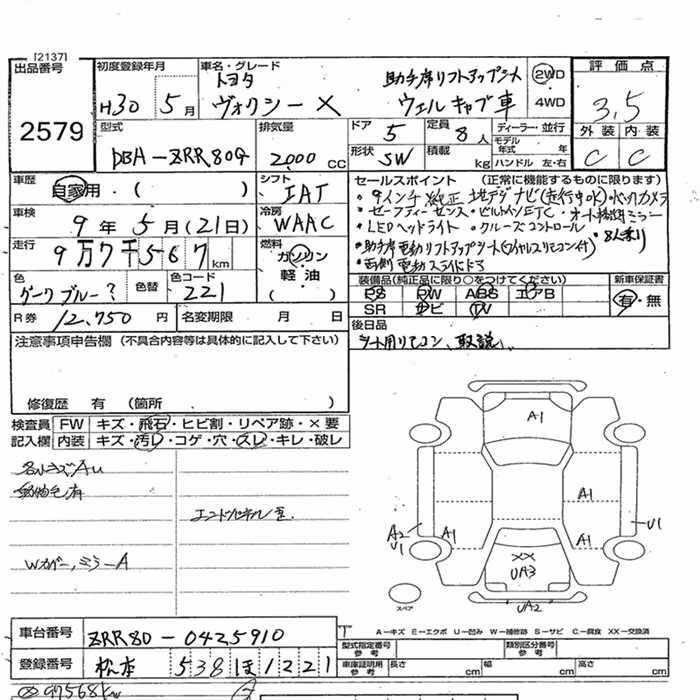 [2137]
出品番号
2579
初度登録年月
H30 5月
車名・グレード
トヨタ
ヴォクシー X
助手席リフトアップシート
ウェルキャブ車
2WD
4WD
評価点
3.5
外装 内装
C C
型式
DBA-ZRR80G
排気量
2000 CC
ドア
5
定員
8人
形状
SW
積載
kg
ディーラー・並行
モデル年式 年
ハンドル 左・右
車歴
自家用 ( )
シフト
IAT
車検
9年5月(21日)
冷房
WAAC
走行
9万7千567km
燃料
ガソリン
軽油
色
ダークブルー?
色替
色コード
221
R券
12,750円
名変期限 月 日
セールスポイント (正常に機能するものに限ります)
・9インチ純正地デジナビ(走行中OK)・バックカメラ
・セーフティーセンス・ビルトインETC・オート格納ミラー
・LEDヘッドライト・クルーズコントロール ・8人乗り
・助手席電動リフトアップシート(ワイヤレスリモコン付)
・両側電動スライドドア
装備品(純正品に限り○をつけてください)
PS PW ABS エアB
SR ナビ TV
新車保証書
有・無
後日品
シート用リモコン、取説、
注意事項申告欄(不具合内容等は具体的に記入して下さい)
修復歴 有 (箇所 )
検査員
記入欄
FW キズ・飛石・ヒビ割・リペア跡・×要
内装 キズ・汚レ・コゲ・穴・スレ・キレ・破レ
Wカバー、ミラーA
A1
A1
A1
A1
A1
A2
U1
U1
XX
UA3
UA2
スペア
A-キズ E-エクボ U-凹み W-補修跡 S-サビ C-腐食 XX-交換済
車台番号
ZRR80-0425910
登録番号
松本 538 ほ 1221
型式指定番号
参考
類別区分番号
参考
車庫証明用
参考
長さ cm
幅 cm
高さ cm
97568km